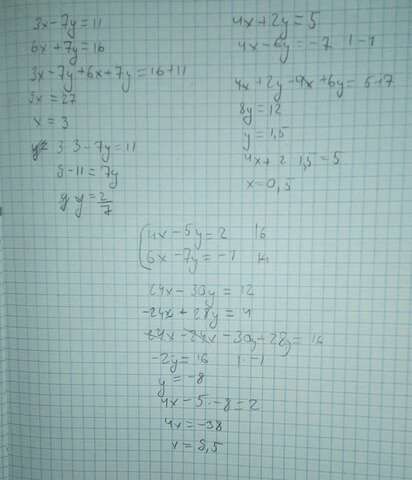 3x-7y=11
6x+7y=16
3x-7y+6x+7y=16+11
9x=27
x=3
3·3-7y=11
9-11=7y
y=2/7
4x+2y=5
4x-6y=-7 |-1
4x+2y-4x+6y=5+7
8y=12
y=1,5
4x+2·1,5=5
x=0,5
4x-5y=2 |6
6x-7y=-1
24x-30y=12
-24x+28y=4
24x-24x-30y+28y=16
-2y=16 |·-1
y=-8
4x-5·-8=2
4x=-38
x=9,5